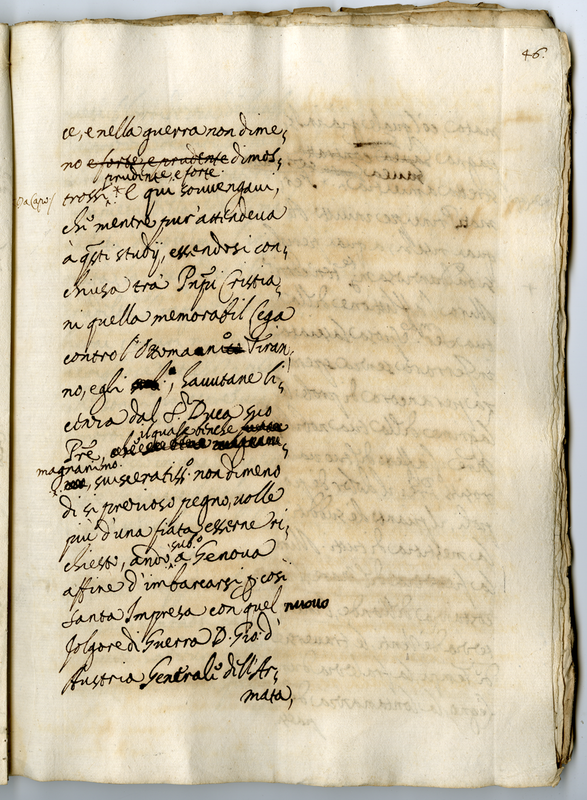 46.
ce, e nella guerra non dime,
no e forte, e prudente dimos,
prudente, e forte.
Da Capo/
trossi. * E qui souuengaui,
che mentre pur' attendeua
à q.sti studij, essendosi con,
chiusa trà Pn̄pi Cristia,
ni quella memorabil Lega
contro l'Ottomano Tiran,
no, egli hauutane li,
cenza dal S.r Duca suo
Pr̄e, il quale benche
magnanimo
suisceratiss.o non dimeno
di si pretioso pegno, uolle
più d'una fiata esserne ri,
chiesto, andò sub.o à Genoua
affine d'imbarcarsi p cosi
Santa Impresa con quel nuouo
folgore di Guerra D. Gio: d'
Austria Generale dell'Ar,
mata,